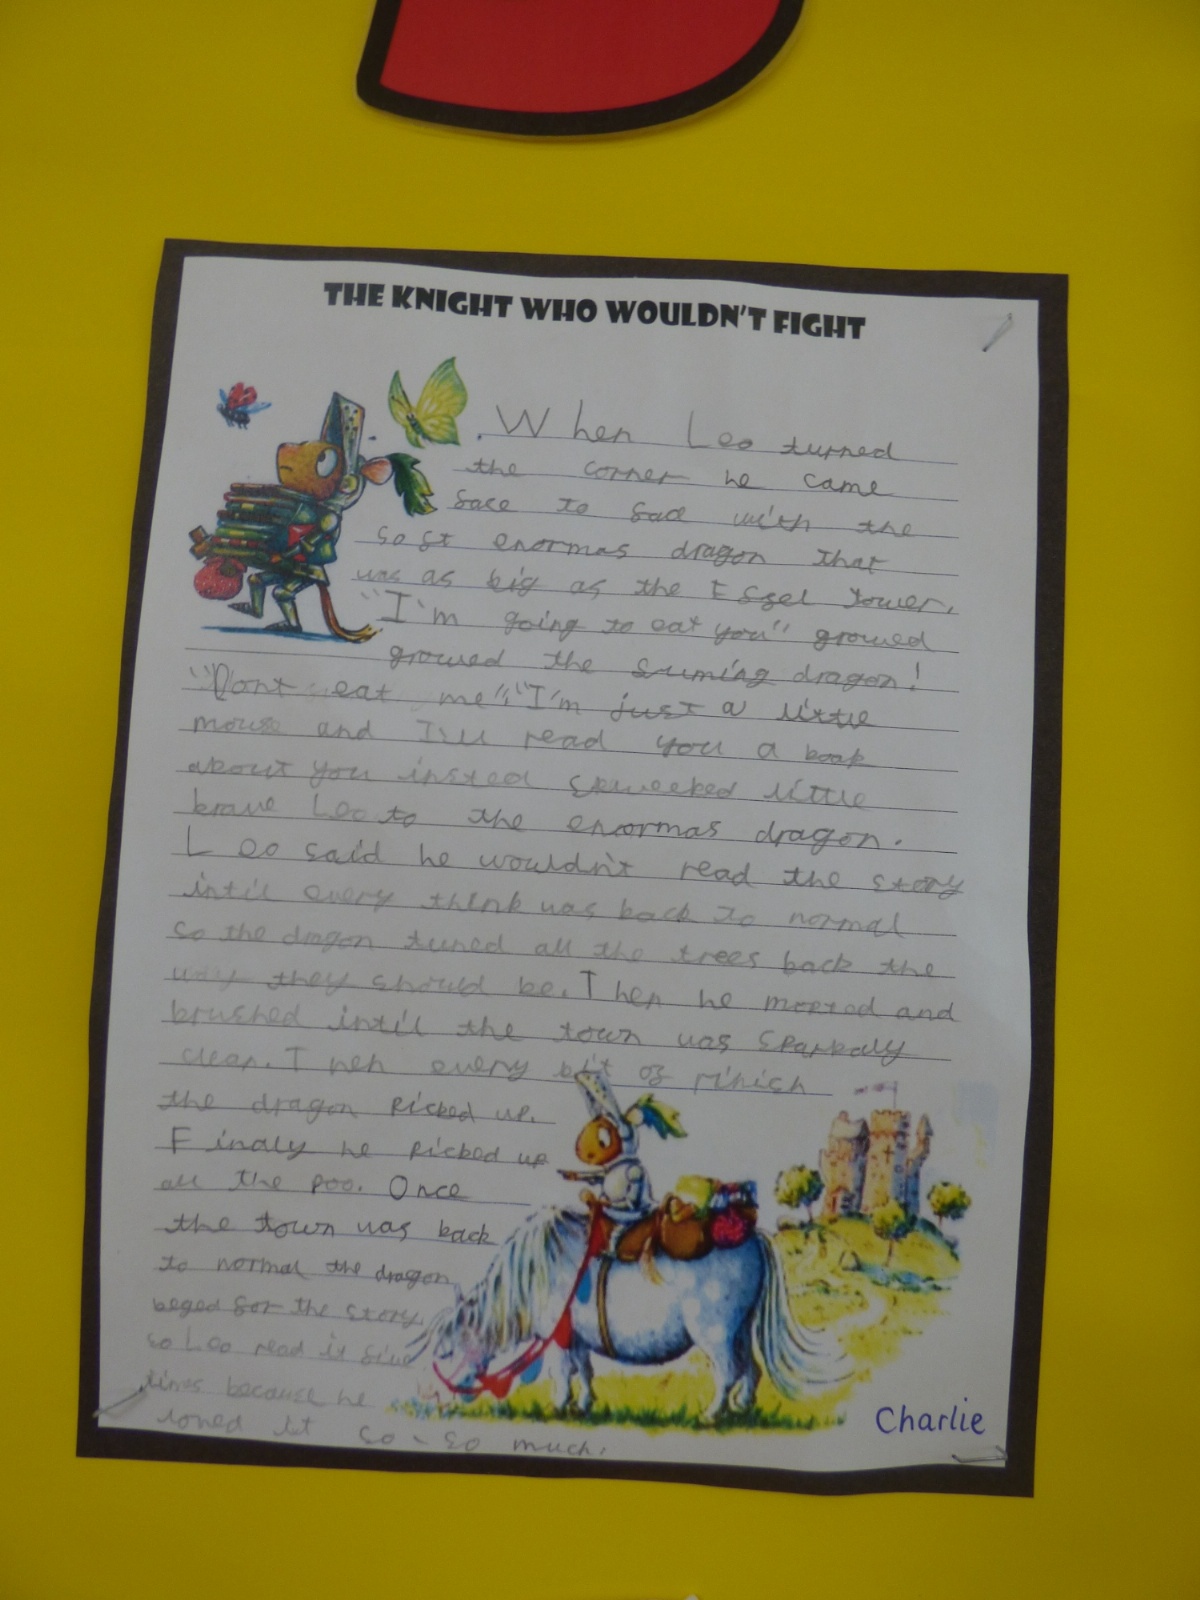 THE KNIGHT WHO WOULDN'T FIGHT
When Leo turned
the corner he came
face to face with the
enormas dragon that
was as big as the Effel tower.
"I'm going to eat you" growed
growed the fuming dragon!
"Dont eat me", "I'm just a little
mouse and I'll read you a book
about you insted squeeked little
brave Leo to the enormas dragon.
Leo said he wouldn't read the story
intil every think was back to normal
so the dragon tuned all the trees back the
way they should be. Then he moped and
brushed intil the town was sparkaly
clean. Then every bit of
the dragon picked up.
Finaly he picked up
all the poo. Once
the town was back
to normal the dragon
beged for the story
so Leo read it five
times because he
loved it so-so much.
Charlie